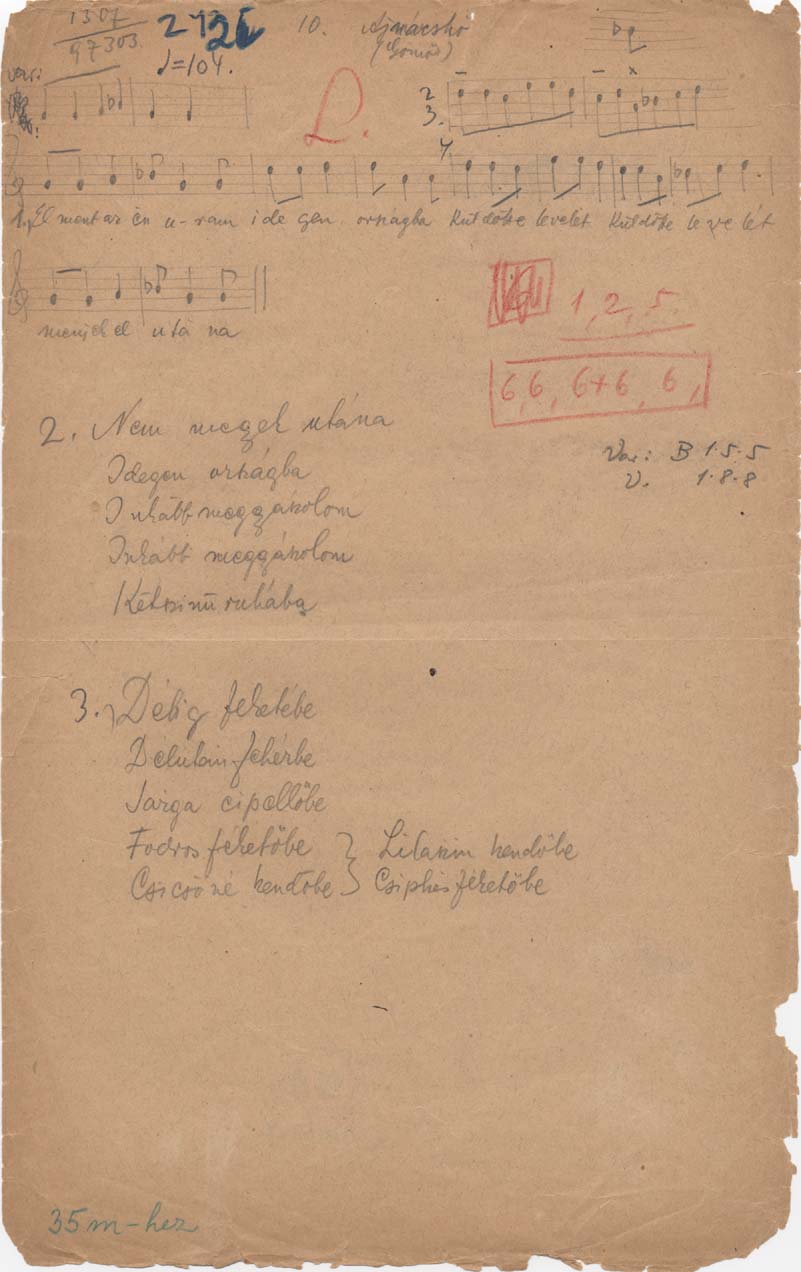 1307
97303
10. Ajnácskő
(Gömör)
♩=104.
vari:
2
3.
1. El ment az én u-ram ide gen országba Küldöte levelét Küldöte le ve lét
menjek el utá na
1, 2, 5.
6, 6, 6+6, 6,
2. Nem megek utána
Idegen országba
Inkább meggzásolom
Inkább meggzásolom
Kétszinü ruhába
Var: B 1.5.5
V. 1.8.8
3. Délig feketébe
Délután fehérbe
Sárga cipellőbe
Fodros féketőbe } Lilaszin kendőbe
Csicsóné kendőbe } Csipkés féketőbe
35 m-hez